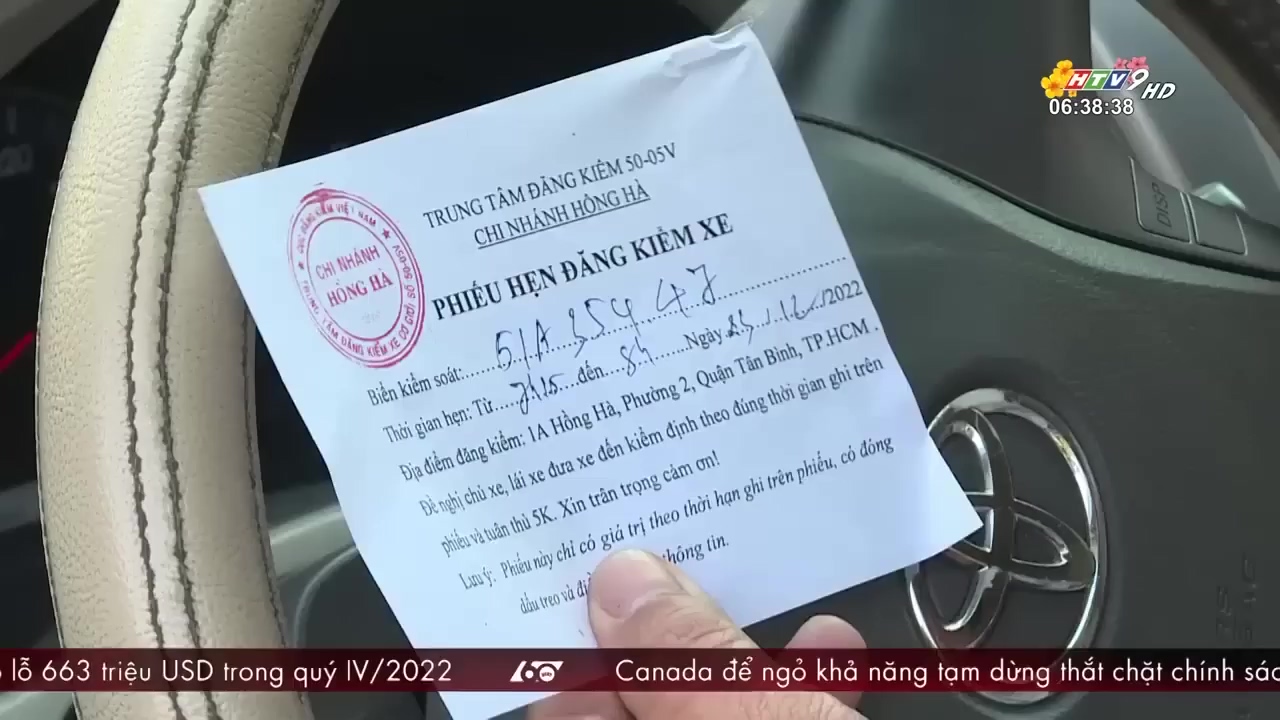 HTV9 HD
06:38:38
DISP
TRUNG TÂM ĐĂNG KIỂM 50-05V
CHI NHÁNH HỒNG HÀ
CỤC ĐĂNG KIỂM VIỆT NAM
CHI NHÁNH
HỒNG HÀ
TRUNG TÂM ĐĂNG KIỂM XE CƠ GIỚI SỐ 50-05V
PHIẾU HẸN ĐĂNG KIỂM XE
Biển kiểm soát: 51A 354 47
Thời gian hẹn: Từ 7h15 đến 8h Ngày /12/2022
Địa điểm đăng kiểm: 1A Hồng Hà, Phường 2, Quận Tân Bình, TP.HCM.
Đề nghị chủ xe, lái xe đưa xe đến kiểm định theo đúng thời gian ghi trên
phiếu và tuân thủ 5K. Xin trân trọng cảm ơn!
Lưu ý: Phiếu này chỉ có giá trị theo thời hạn ghi trên phiếu, có đóng
dấu treo và thông tin.
lỗ 663 triệu USD trong quý IV/2022 60 giây Canada để ngỏ khả năng tạm dừng thắt chặt chính sác